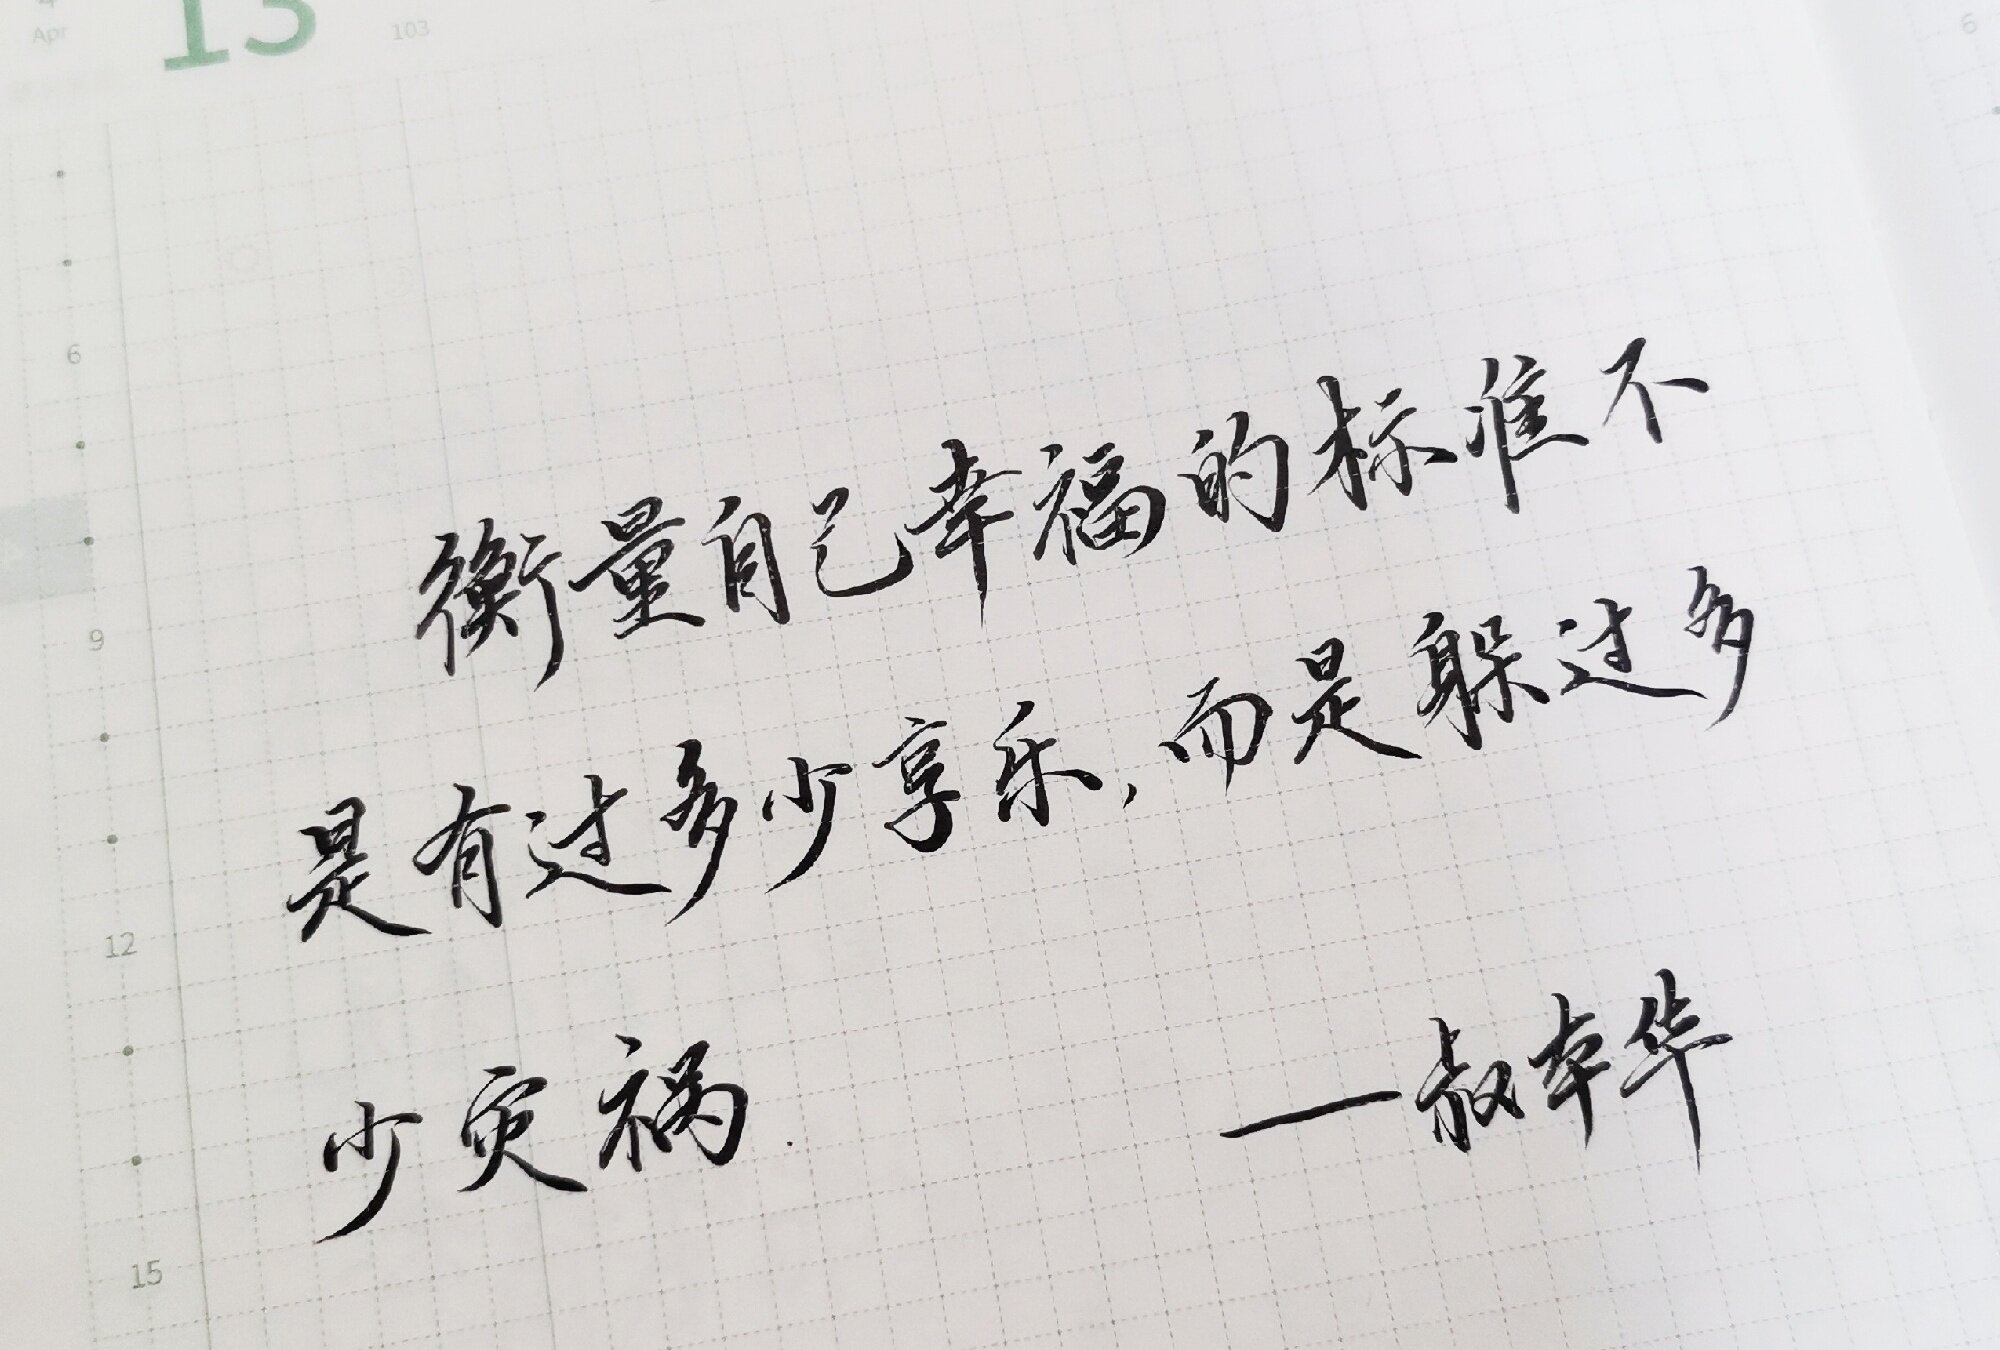 Apr
13
103
6
6
衡量自己幸福的标准不
是有过多少享乐，而是躲过多
9
12
少灾祸.
——叔本华
15